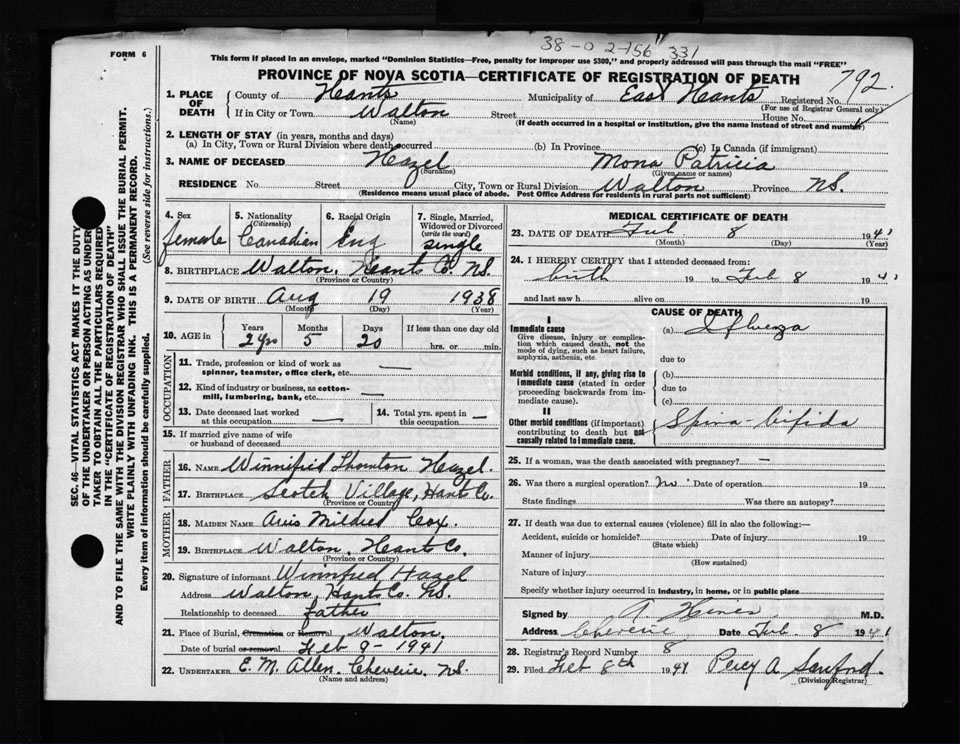 38-0 2-156 331
FORM 6
This form if placed in an envelope, marked "Dominion Statistics—Free, penalty for improper use $300," and properly addressed will pass through the mail "FREE"
PROVINCE OF NOVA SCOTIA—CERTIFICATE OF REGISTRATION OF DEATH
792.
1. PLACE OF DEATH County of Hants Municipality of East Hants Registered No.
(For use of Registrar General only)
If in City or Town Walton Street House No.
(Name) (If death occurred in a hospital or institution, give the name instead of street and number)
2. LENGTH OF STAY (in years, months and days)
(a) In City, Town or Rural Division where death occurred (b) In Province (c) In Canada (if immigrant)
3. NAME OF DECEASED Hazel Mona Patricia
(Surname) (Given name or names)
RESIDENCE No. Street City, Town or Rural Division Walton Province N.S.
(Residence means usual place of abode. Post Office Address for residents in rural parts not sufficient)
SEC. 46—VITAL STATISTICS ACT MAKES IT THE DUTY
OF THE UNDERTAKER OR PERSON ACTING AS UNDER-
TAKER TO OBTAIN ALL THE PARTICULARS REQUIRED
IN THE "CERTIFICATE OF REGISTRATION OF DEATH"
AND TO FILE THE SAME WITH THE DIVISION REGISTRAR WHO SHALL ISSUE THE BURIAL PERMIT.
WRITE PLAINLY WITH UNFADING INK. THIS IS A PERMANENT RECORD.
Every item of information should be carefully supplied. (See reverse side for instructions.)
4. Sex female
5. Nationality (Citizenship) Canadian
6. Racial Origin Eng
7. Single, Married, Widowed or Divorced (write the word) single
8. BIRTHPLACE Walton, Hants Co. N.S.
(Province or Country)
9. DATE OF BIRTH Aug 19 1938
(Month) (Day) (Year)
10. AGE in Years Months Days If less than one day old
2 yrs 5 20 hrs. or min.
OCCUPATION
11. Trade, profession or kind of work as
spinner, teamster, office clerk, etc. —
12. Kind of industry or business, as cotton-
mill, lumbering, bank, etc. —
13. Date deceased last worked
at this occupation —
14. Total yrs. spent in
this occupation —
15. If married give name of wife
or husband of deceased
FATHER
16. NAME Winnifred Thornton Hazel.
17. BIRTHPLACE Scotch Village, Hants Co.
(Province or Country)
MOTHER
18. MAIDEN NAME Mildred Cox.
19. BIRTHPLACE Walton, Hants Co.
(Province or Country)
20. Signature of informant Winnifred Hazel
Address Walton, Hants Co. N.S.
Relationship to deceased father
21. Place of Burial, Cremation or Removal Walton.
Date of burial or removal Feb 9 - 1941
22. UNDERTAKER E. M. Allen, Cheverie, N.S.
(Name and address)
MEDICAL CERTIFICATE OF DEATH
23. DATE OF DEATH Feb 8 1941
(Month) (Day) (Year)
24. I HEREBY CERTIFY that I attended deceased from:
birth 19 to Feb 8 1941
and last saw h alive on 19
CAUSE OF DEATH
I
Immediate cause
Give disease, injury or complica-
tion which caused death, not the
mode of dying, such as heart failure,
asphyxia, asthenia, etc.
(a) Influenza
due to
Morbid conditions, if any, giving rise to
immediate cause (stated in order
proceeding backwards from im-
mediate cause).
(b)
due to
(c)
II
Other morbid conditions (if important)
contributing to death but not
causally related to immediate cause.
Spina-bifida
25. If a woman, was the death associated with pregnancy? —
26. Was there a surgical operation? No Date of operation 19
State findings Was there an autopsy?
27. If death was due to external causes (violence) fill in also the following:—
Accident, suicide or homicide? Date of injury 19
(State which)
Manner of injury
(How sustained)
Nature of injury
Specify whether injury occurred in industry, in home, or in public place
Signed by A. M.D.
Address Cheverie Date Feb. 8 1941
28. Registrar's Record Number 8
29. Filed Feb 8th 1941 Percy A Sanford
(Division Registrar)